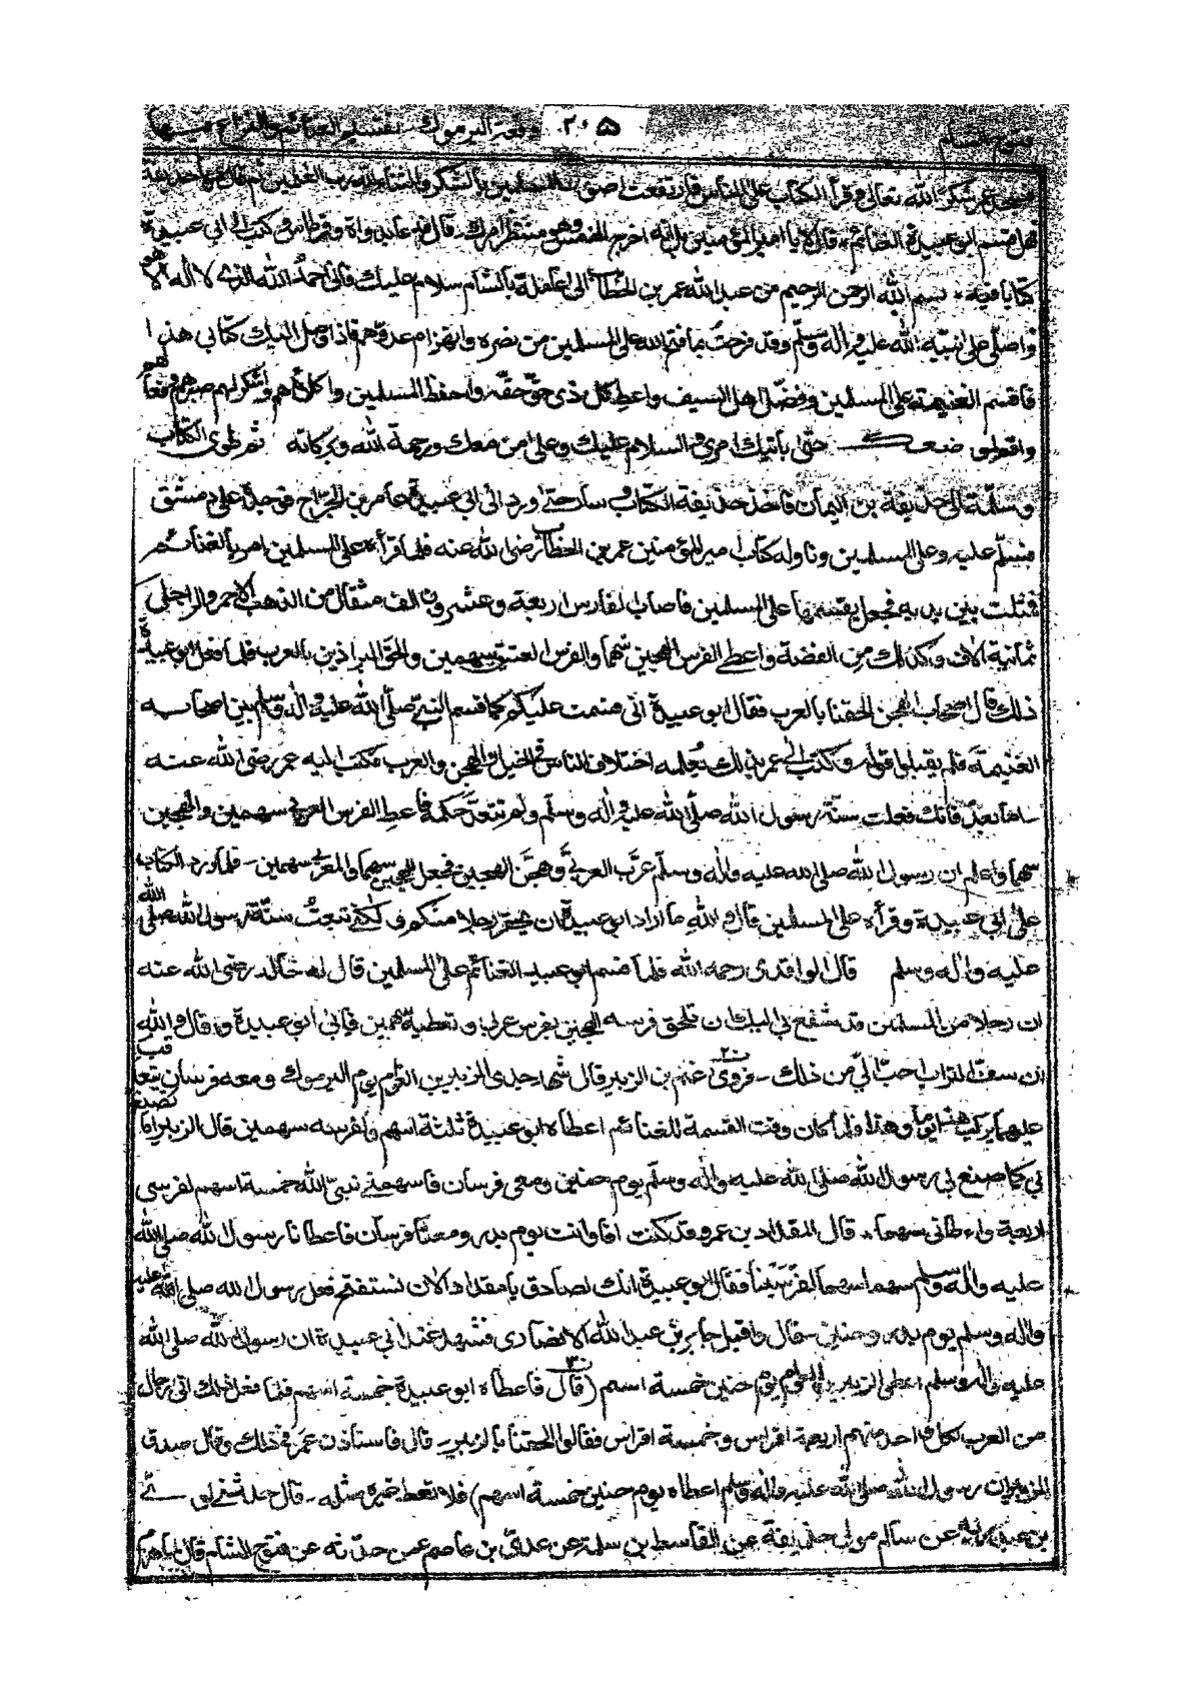 فتوح الشام ٢٠٥ وقعة اليرموك - تقسيم الغنائم
عمر شكرًا لله تعالى وقرأ الكتاب على الناس فارتفعت اصوات المسلمين بالشكر والثناء لله رب العلمين ثم قال يا حذيفة
هل قسم ابو عبيدة الغنائم، قال لا يا امير المؤمنين وهو منتظر امرك، قال فدعا بدواة وقرطاس وكتب الى ابي عبيدة
كتابا فيه، بسم الله الرحمن الرحيم من عبد الله عمر بن الخطاب الى عامله بالشام سلام عليك فانى احمد الله الذى لا اله الا هو
واصلى على نبيه صلى الله عليه واله وسلم وقد فرحت بما فتح الله على المسلمين من نصره وانهزام عدوهم فاذا وصل اليك كتابى هذا
فاقسم الغنيمة على المسلمين وفضل اهل السيف واعط كل ذى حق حقه واحفظ المسلمين واكلأهم واشكر لهم صبرهم وفعالهم
حتى يأتيك امرى والسلام عليك وعلى من معك ورحمة الله وبركاته ثم طوى الكتاب
وسلمه الى حذيفة بن اليمان فاخذ حذيفة الكتاب وسار حتى ورد الى ابى عبيدة عامر بن الجراح فوجده على دمشق
فسلم عليه وعلى المسلمين وناوله كتاب امير المؤمنين عمر بن الخطاب رضى الله عنه فلما قرأه على المسلمين امر بالغنائم
فمثلت بين يديه فجعل يقسمها على المسلمين فاصاب الفارس اربعة وعشرون الف مثقال من الذهب الاحمر والراجل
ثمانية الاف وكذلك من الفضة واعطى الفرس الهجين سهما والفرس العتيق سهمين والحق البراذين بالعرب فلما فعل ابو عبيدة
ذلك قال اصحاب الهجن الحقنا بالعرب فقال ابو عبيدة انى قسمت عليكم كما قسم النبى صلى الله عليه واله وسلم بين اصحابه
الغنيمة فلم يقبلوا قوله وكتب الى عمر بذلك يعلمه اختلاف الناس فى الخيل والهجن والعرب فكتب اليه عمر رضى الله عنه
اما بعد فانك فعلت سنة رسول الله صلى الله عليه واله وسلم ولم تتعد حكمه فاعط الفرس العربى سهمين والهجين
سهما واعلم ان رسول الله صلى الله عليه واله وسلم عرب العربى وهجن الهجين فجعل للهجين سهما وللعربى سهمين - فلما ورد الكتاب
على ابى عبيدة وقرأه على المسلمين قال والله ما اراد ابو عبيدة ان يحقر رجلا منكم ولكنى تبعت سنة رسول الله صلى الله
عليه واله وسلم قال الواقدى رحمه الله فلما قسم ابو عبيدة الغنائم على المسلمين قال له خالد رضى الله عنه
ان رجلا من المسلمين قد تشفع بى اليك ان تلحق فرسه الهجين بفرس عربى وتعطيه سهمين فابى ابو عبيدة وقال والله
ان سف التراب احب الى من ذلك - فروى غنم بن الزبير قال شهد جدى الزبير بن العوام يوم اليرموك ومعه فرسان يتعاقب
عليهما يركب هذا يوما وهذا فلما كان وقت القسمة للغنائم اعطاه ابو عبيدة ثلثة اسهم وله ولفرسه سهمين قال الزبير اما تصنع
بى كما صنع بى رسول الله صلى الله عليه واله وسلم يوم حنين ومعى فرسان فاسهمنى نبى الله خمسة اسهم لفرسى
اربعة واعطانى سهما، قال المقداد بن عمرو قد كنت انا وانت يوم بدر ومعنا فرسان فاعطانا رسول الله صلى الله
عليه واله وسلم سهما سهما لفرسينا فقال ابو عبيدة انك لصادق يا مقداد الان نستفتح فعل رسول الله صلى الله عليه
واله وسلم يوم بدر وحنين - قال واقبل جابر بن عبد الله الانصارى فشهد عند ابى عبيدة ان رسول الله صلى الله
عليه واله وسلم اعطى الزبير بن العوام يوم حنين خمسة اسهم (قال فاعطاه ابو عبيدة خمسة اسهم فلما فعل ذلك اتى رجال
من العرب لكل واحد منهم اربعة افراس وخمسة افراس فقالوا الحقنا بالزبير - قال فاستأذن عمر فى ذلك وقال صدق
الزبير ان رسول الله صلى الله عليه واله وسلم اعطاه يوم حنين خمسة اسهم) فلا تعط غيره مثله - قال حدثنى لوى
بن عبد ربه عن سالم مولى حذيفة عن القاسط بن سلمة عن عدى بن عاصم عمن حدثه عن فتوح الشام قال